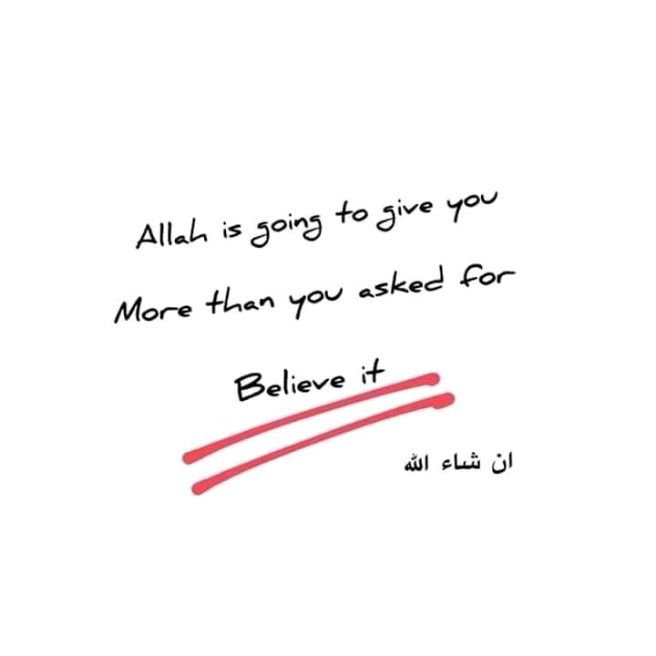 Allah is going to give you
More than you asked for
Believe it
ان شاء الله